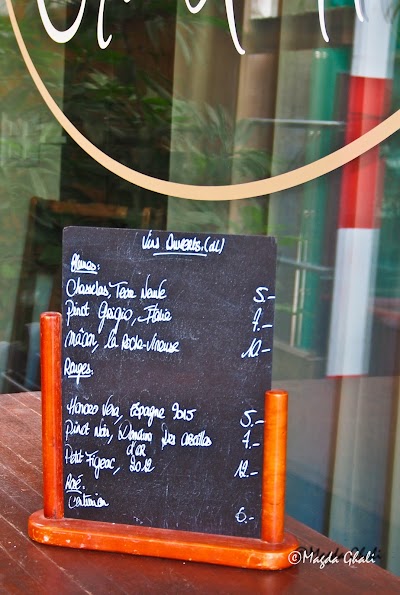 Vins Ouverts (dl)
Blancs:
Chasselas, Terre Neuve 5.-
Pinot Grigio, Italie 7.-
Mâcon, La Roche-Vineuse 10.-
Rouges:
Honoro Vera, Espagne 2015 5.-
Pinot Noir, Domaine Des 7.-
d'or
Petit Figeac, 2012 12.-
Rosé:
6.-
©Magda Ghali